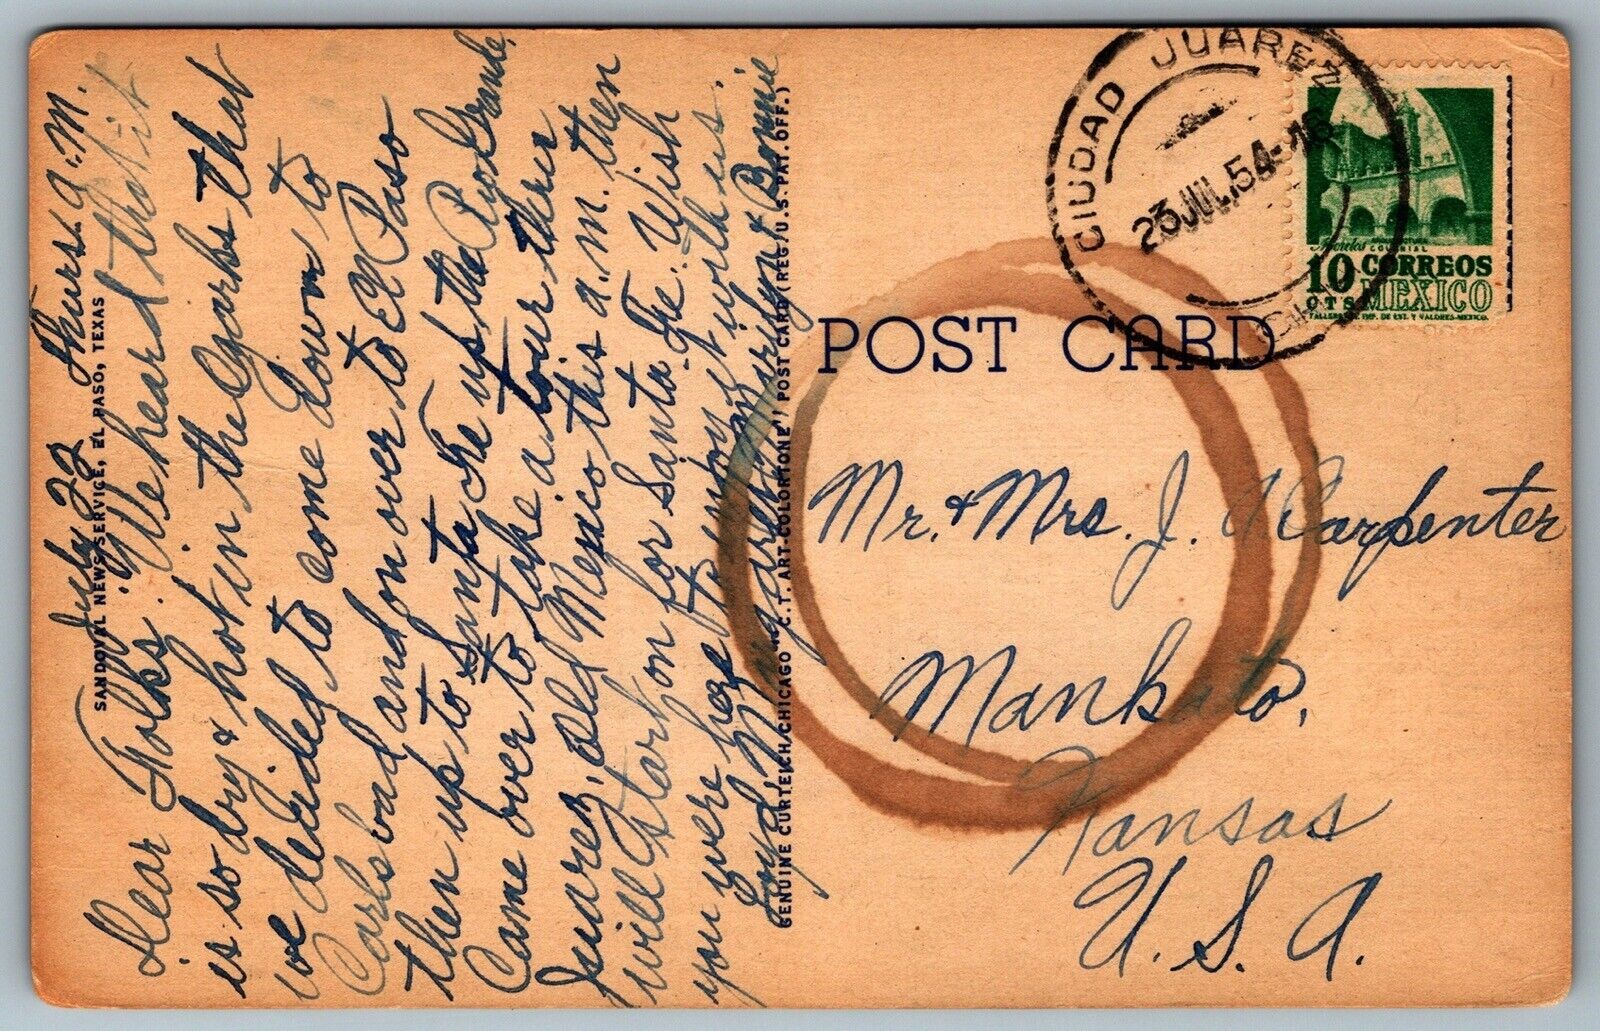 July 22 Thurs. a.m.
Dear Folks: We heard that it
is so dry & hot in the Ozarks that
we decided to come down to
Carlsbad and on over to El Paso
then up to Santa Fe up the Rio Grande.
Came over to take a tour there
Juarez, Old Mexico this a.m. then
will start on for Santa Fe. Wish
you were here to enjoy it with us.
Loyd, Margaret, Marilyn & Bonnie
SANDOVAL NEWS SERVICE, EL PASO, TEXAS
GENUINE CURTEICH-CHICAGO "C.T. ART-COLORTONE" POST CARD (REG. U.S. PAT. OFF.)
POST CARD
CIUDAD JUAREZ
23 JUL. 54
CHIH
Morelos COLONIAL
10 CORREOS
CTS MEXICO
TALLERES IMP. DE EST. Y VALORES-MEXICO.
Mr. & Mrs. J. Carpenter
Mankato,
Kansas
U. S. A.